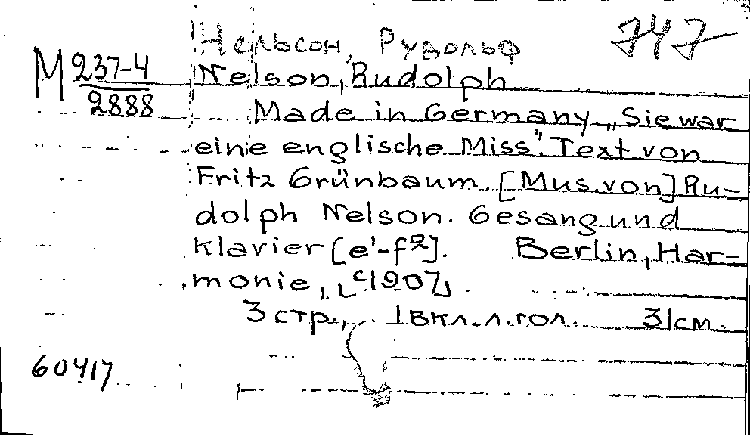 Нельсон, Рудольф 747
M 237-4
2888
Nelson, Rudolph
Made in Germany „Sie war
eine englische Miss". Text von
Fritz Grünbaum. [Mus. von] Ru-
dolph Nelson. Gesang und
Klavier [e¹-f²]. Berlin, Har-
monie, [c1907].
3 стр., 1 вкл. л. гол. 31 см.
60417